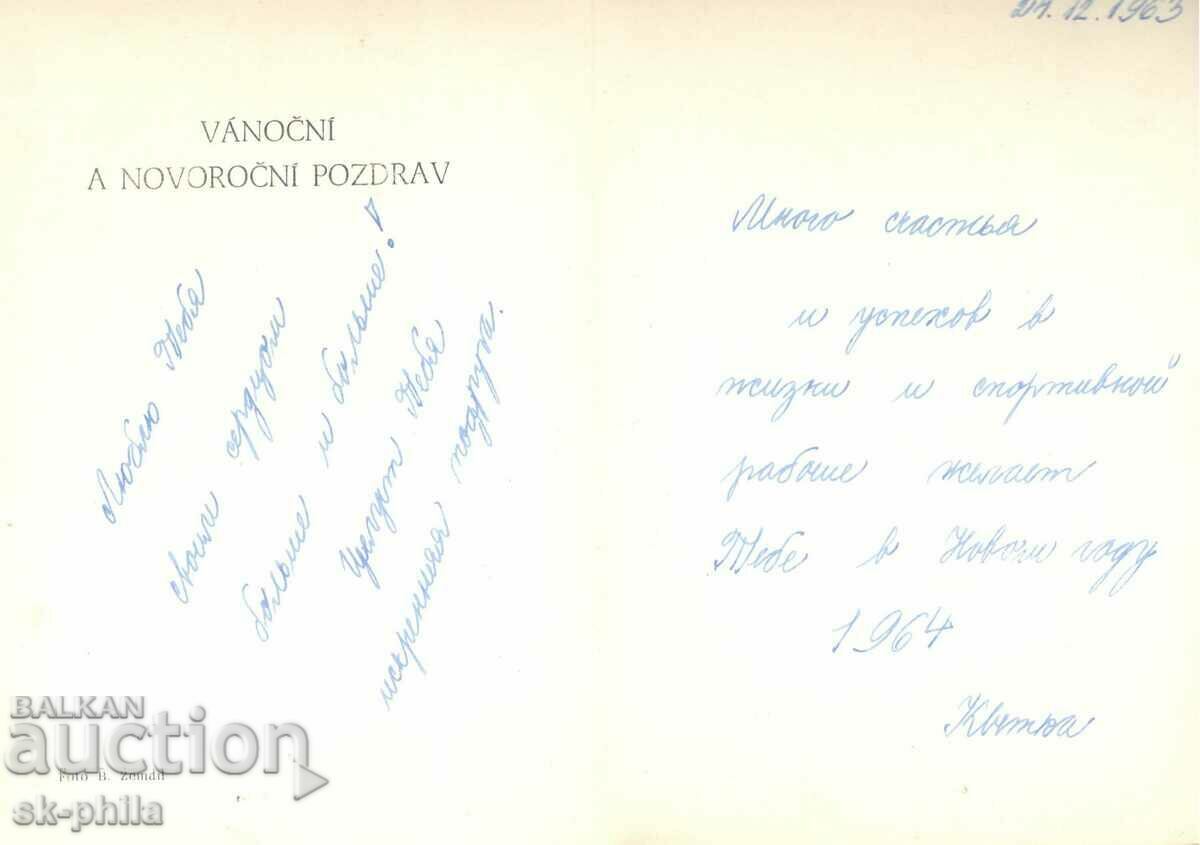 VÁNOČNÍ
A NOVOROČNÍ POZDRAV
Люблю Тебя
своим сердцом
больше и больше!
Целует Тебя
искренная подруга.
Foto B. Zeman
21.12.1963
Много счастья
и успехов в
жизни и спортивной
работе желает
Тебе в Новом году
1964
Кветка
BALKAN
auction
sk-phila